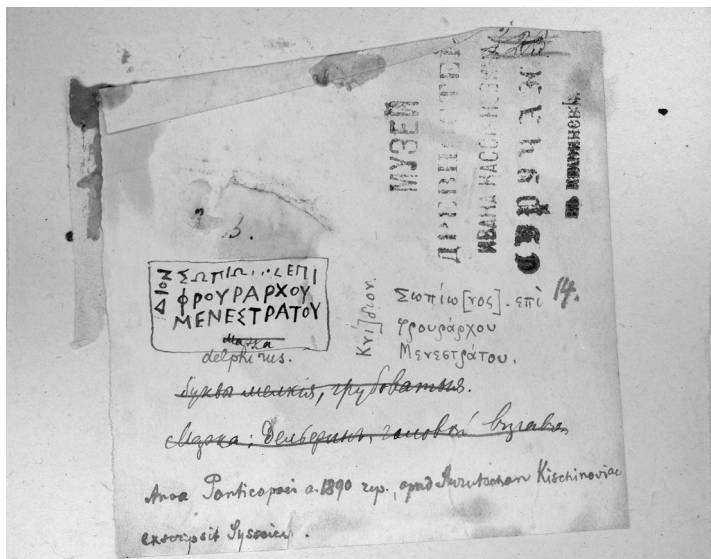 МУЗЕЙ
ДРЕВНОСТЕЙ
ИВАНА КАССІАНОВИЧА
СУРУЧАН
въ КИШИНЕВѢ.
ΔΙΟΝ
ΣΩΠΙΩ...Σ ΕΠΙ
ΦΡΟΥΡΑΡΧΟΥ
ΜΕΝΕΣΤΡΑΤΟΥ
delphinus.
Κνί]διον.
Σωπίω[νος]. ἐπὶ
φρουράρχου
Μενεστράτου.
14.
буквы мелкія, грубоватыя.
Марка: Дельфинъ, головой влѣво
Ansa Panticapaei a. 1890 rep., apud Surutschan Kischinoviae
exscripsit